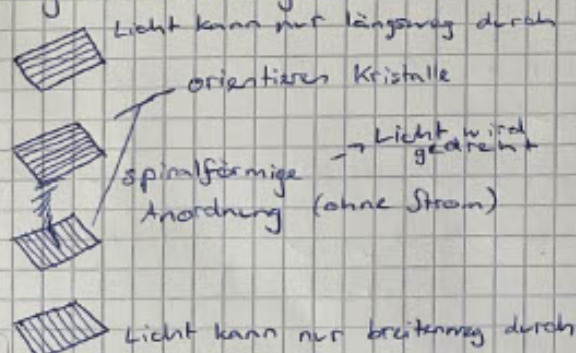 Licht kann nur längsweg durch
orientieren Kristalle
Licht wird
gedreht
spiralförmige
Anordnung (ohne Strom)
Licht kann nur breitenweg durch